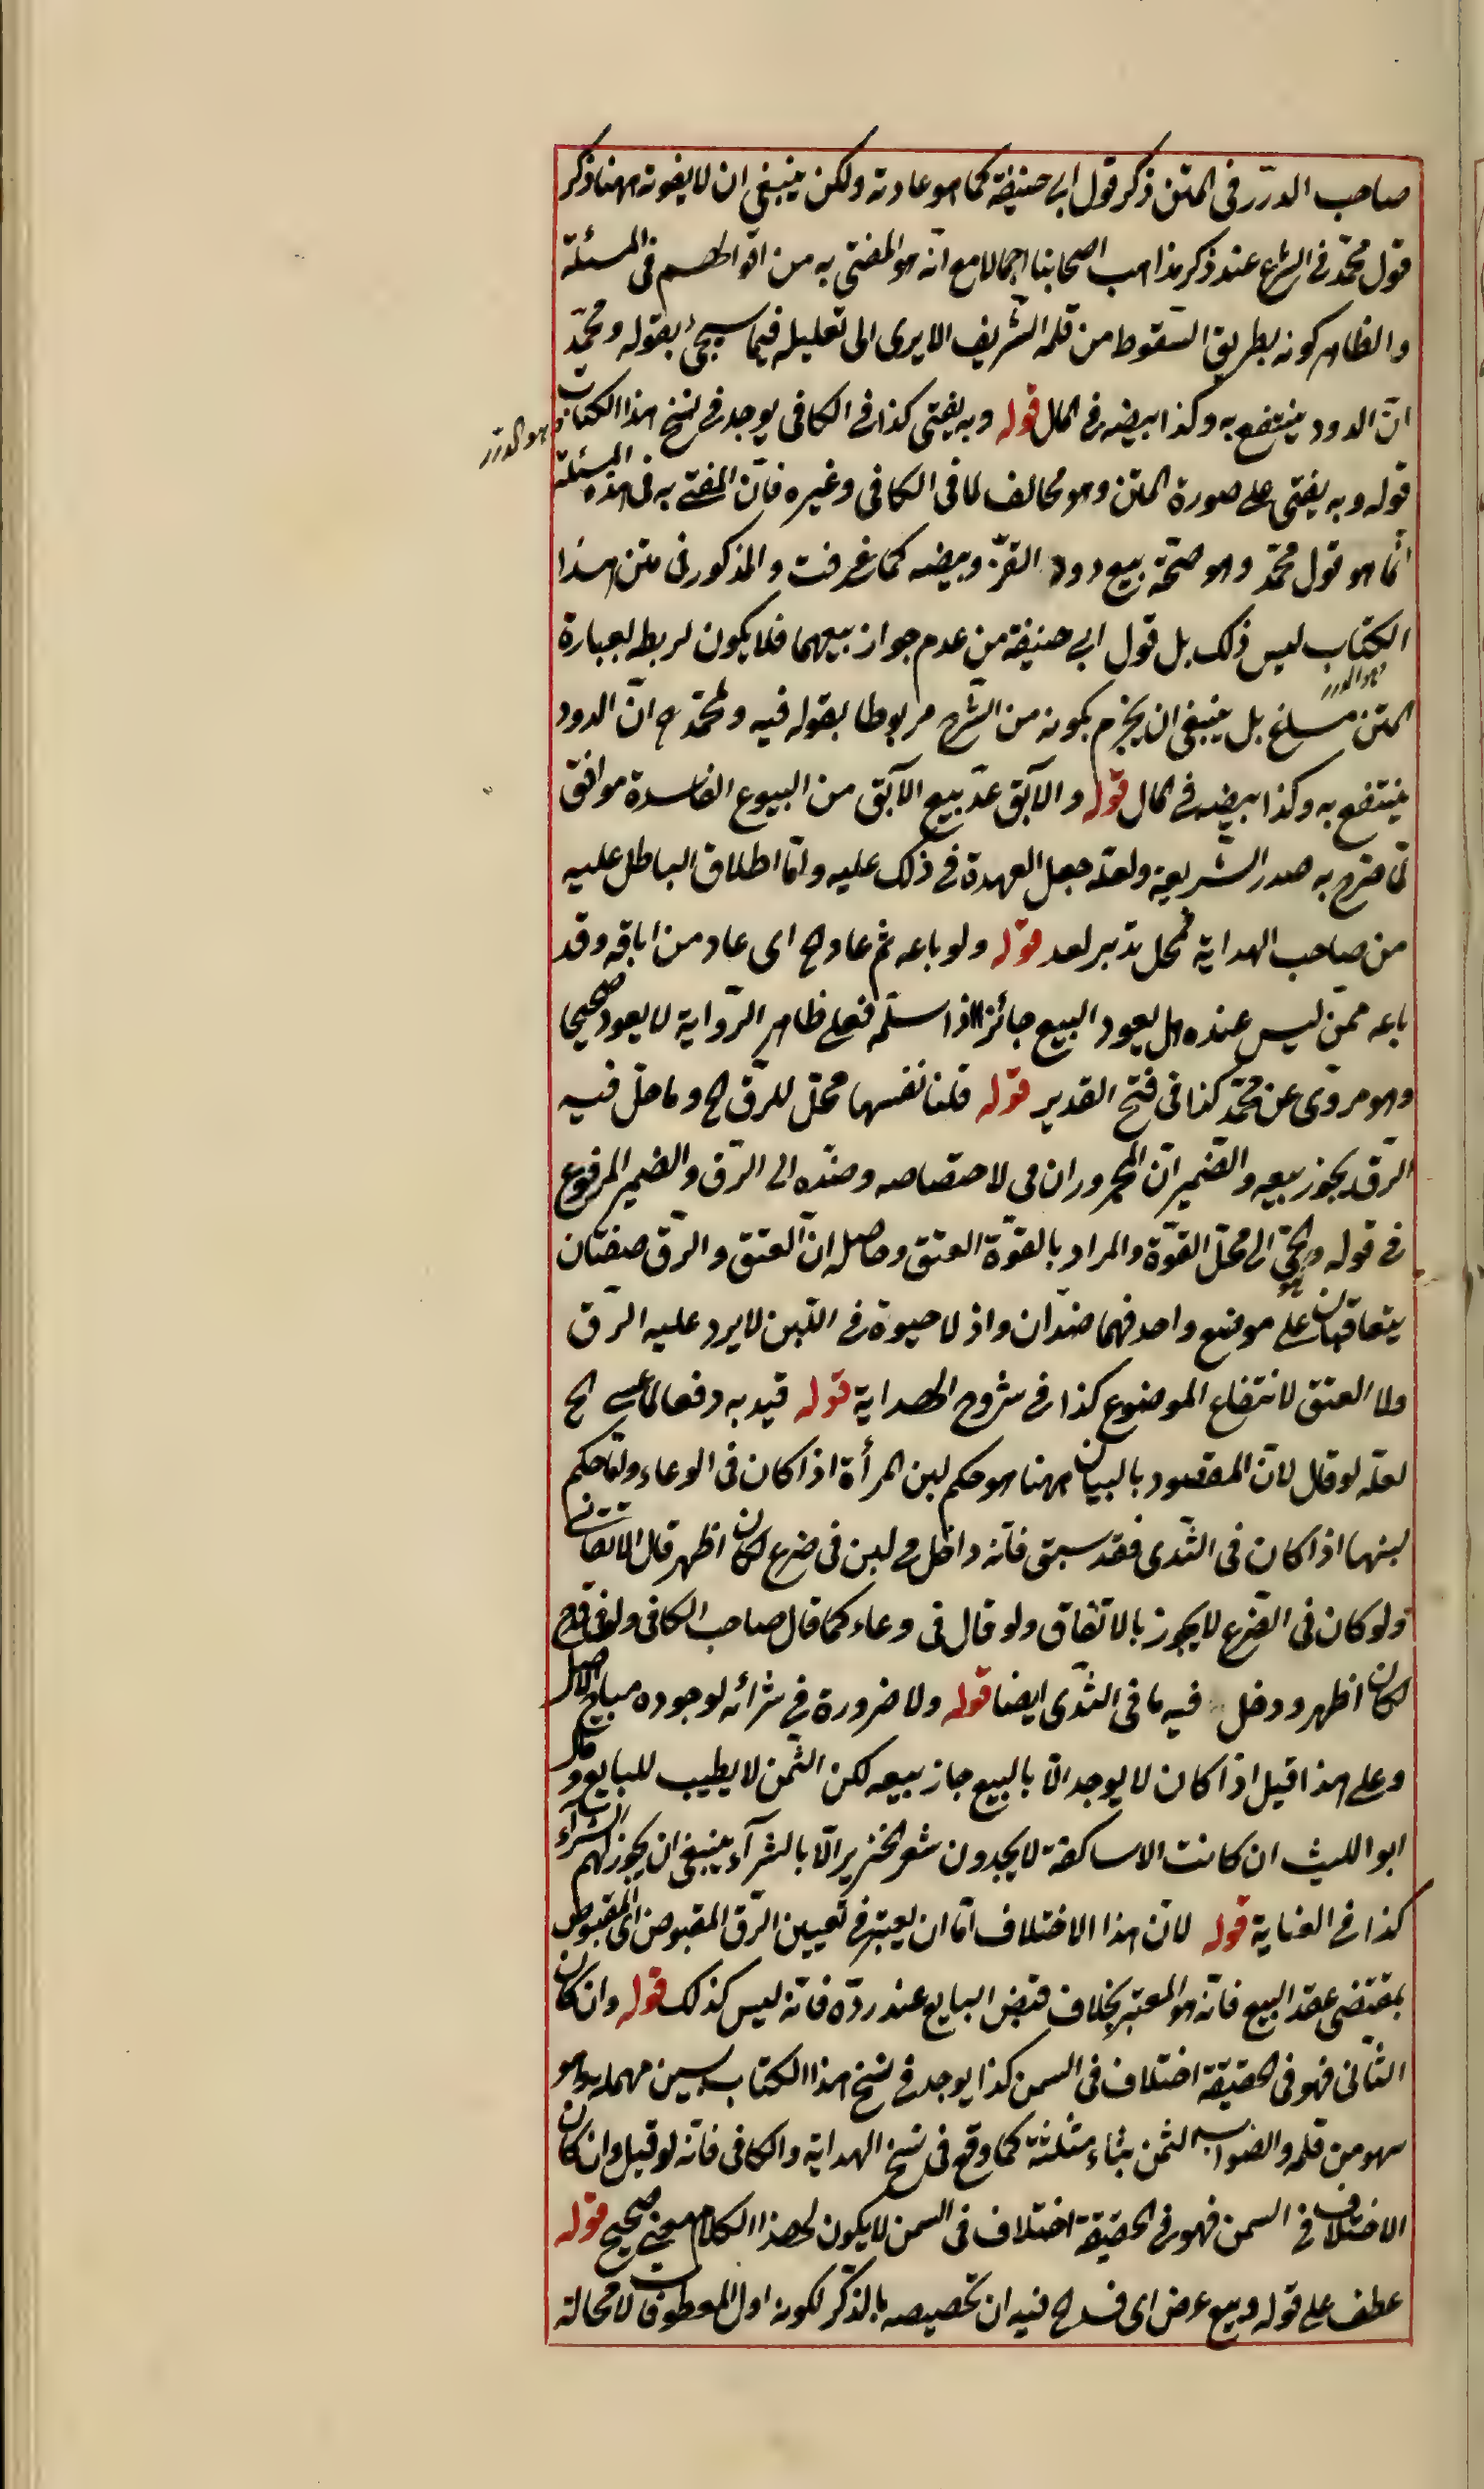 صاحب الدرر فى المتن ذكر قول ابى حنيفة كما هو عادته ولكن ينبغى ان لا يفوته ههنا ذكر
قول محمّد فى الشرح عند ذكر مذاهب اصحابنا اجمالا مع انّه هو المفتى به من اقوالهم فى المسئلة
والظاهر كونه بطريق السّقوط من قلمه الشّريف الا يرى الى تعليله فيما سيجئ بقوله ومحمّد
انّ الدود ينتفع به وكذا بيضه فى المال قوله وبه يفتى كذا فى الكافى يوجد فى نسخ هذا الكتاب
وهو الدرر
قوله وبه يفتى على صورة المتن وهو مخالف لما فى الكافى وغيره فانّ المفتى به فى هذه المسئلة
انّما هو قول محمّد وهو صحّة بيع دود القزّ وبيضه كما عرفت والمذكور فى متن هذا
الكتاب ليس ذلك بل قول ابى حنيفة من عدم جواز بيعهما فلا يكون لربطه لعبارة
وهو الدرر
المتن مساغ بل ينبغى ان يجزم بكونه من الشّرح مربوطا بقوله فيه ولمحمّد ح انّ الدود
ينتفع به وكذا بيضه فى المال قوله والآبق عدّ بيع الآبق من البيوع الفاسدة موافق
لما صرّح به صدر الشّريعة ولعلّه جعل العهدة فى ذلك عليه وامّا اطلاق الباطل عليه
من صاحب الهداية فمحل تدبر لعد قوله ولو باعه ثم عاد الخ اى عاد من اباقه وقد
باعه ممّن ليس عنده هل يعود البيع جائزا اذا سلّمه فعلى ظاهر الرّواية لا يعود صحيحا
وهو مروىّ عن محمّد كذا فى فتح القدير قوله قلنا نفسها محّل للرّق الخ وما حلّ فيه
الرّق يجوز بيعه والضّميران المجروران فى لاختصاصه وضدّه الى الرّق والضمير المرفوع
فى قوله وهو الحىّ الى محلّ القوّة والمراد بالقوّة العتق وحاصله انّ العتق والرّق صفتان
يتعاقبان على موضع واحد فهما ضدّان واذ لا حيوة فى اللّبن لا يرد عليه الرّق
ولا العتق لانتفاء الموضوع كذا فى شروح الهداية قوله قيد به دفعا لما عسى الخ
لعلّه لو قال لانّ المقصود بالبيان ههنا هو حكم لبن المرأة اذا كان فى الوعاء وامّا حكم
لبنها اذا كان فى الثّدى فقد سبق فانّه داخل فى لبن فى ضرع لكان اظهر قال الاتقانى
ولو كان فى الضّرع لا يجوز بالاتفاق ولو قال فى وعاء كما قال صاحب الكافى ولو فى قدح
لكان اظهر ودخل فيه ما فى الثّدى ايضا قوله ولا ضرورة فى شرائه لوجوده مباح الاصل
وعلى هذا قيل اذا كان لا يوجد الّا بالبيع جاز بيعه لكن الثّمن لا يطيب للبايع وقال
ابو الليث ان كانت الاساكفة لا يجدون شعر الخنزير الّا بالشرآء ينبغى ان يجوز لهم الشرآء
كذا فى العناية قوله لانّ هذا الاختلاف امّا ان يعتبر فى تعيين الزّق المقبوض اى المقبوض
بمقتضى عقد البيع فانّه هو المعتبر بخلاف قبض البايع عند ردّه فانّه ليس كذلك قوله وان كان
الثّانى فهو فى الحقيقة اختلاف فى السمن كذا يوجد فى نسخ هذا الكتاب بسين مهملة وهو
سهو من قلمه والصّواب الثمن بثاء مثلّثة كما وقع فى نسخ الهداية والكافى فانّه لو قيل وان كان
الاختلاف فى السمن فهو فى الحقيقة اختلاف فى السمن لا يكون لهذا الكلام معنى صحيح قوله
عطف على قوله وبيع عرض اى فسد الخ فيه ان تخصيصه بالذّكر لكونه اول المعطوف لا محالة